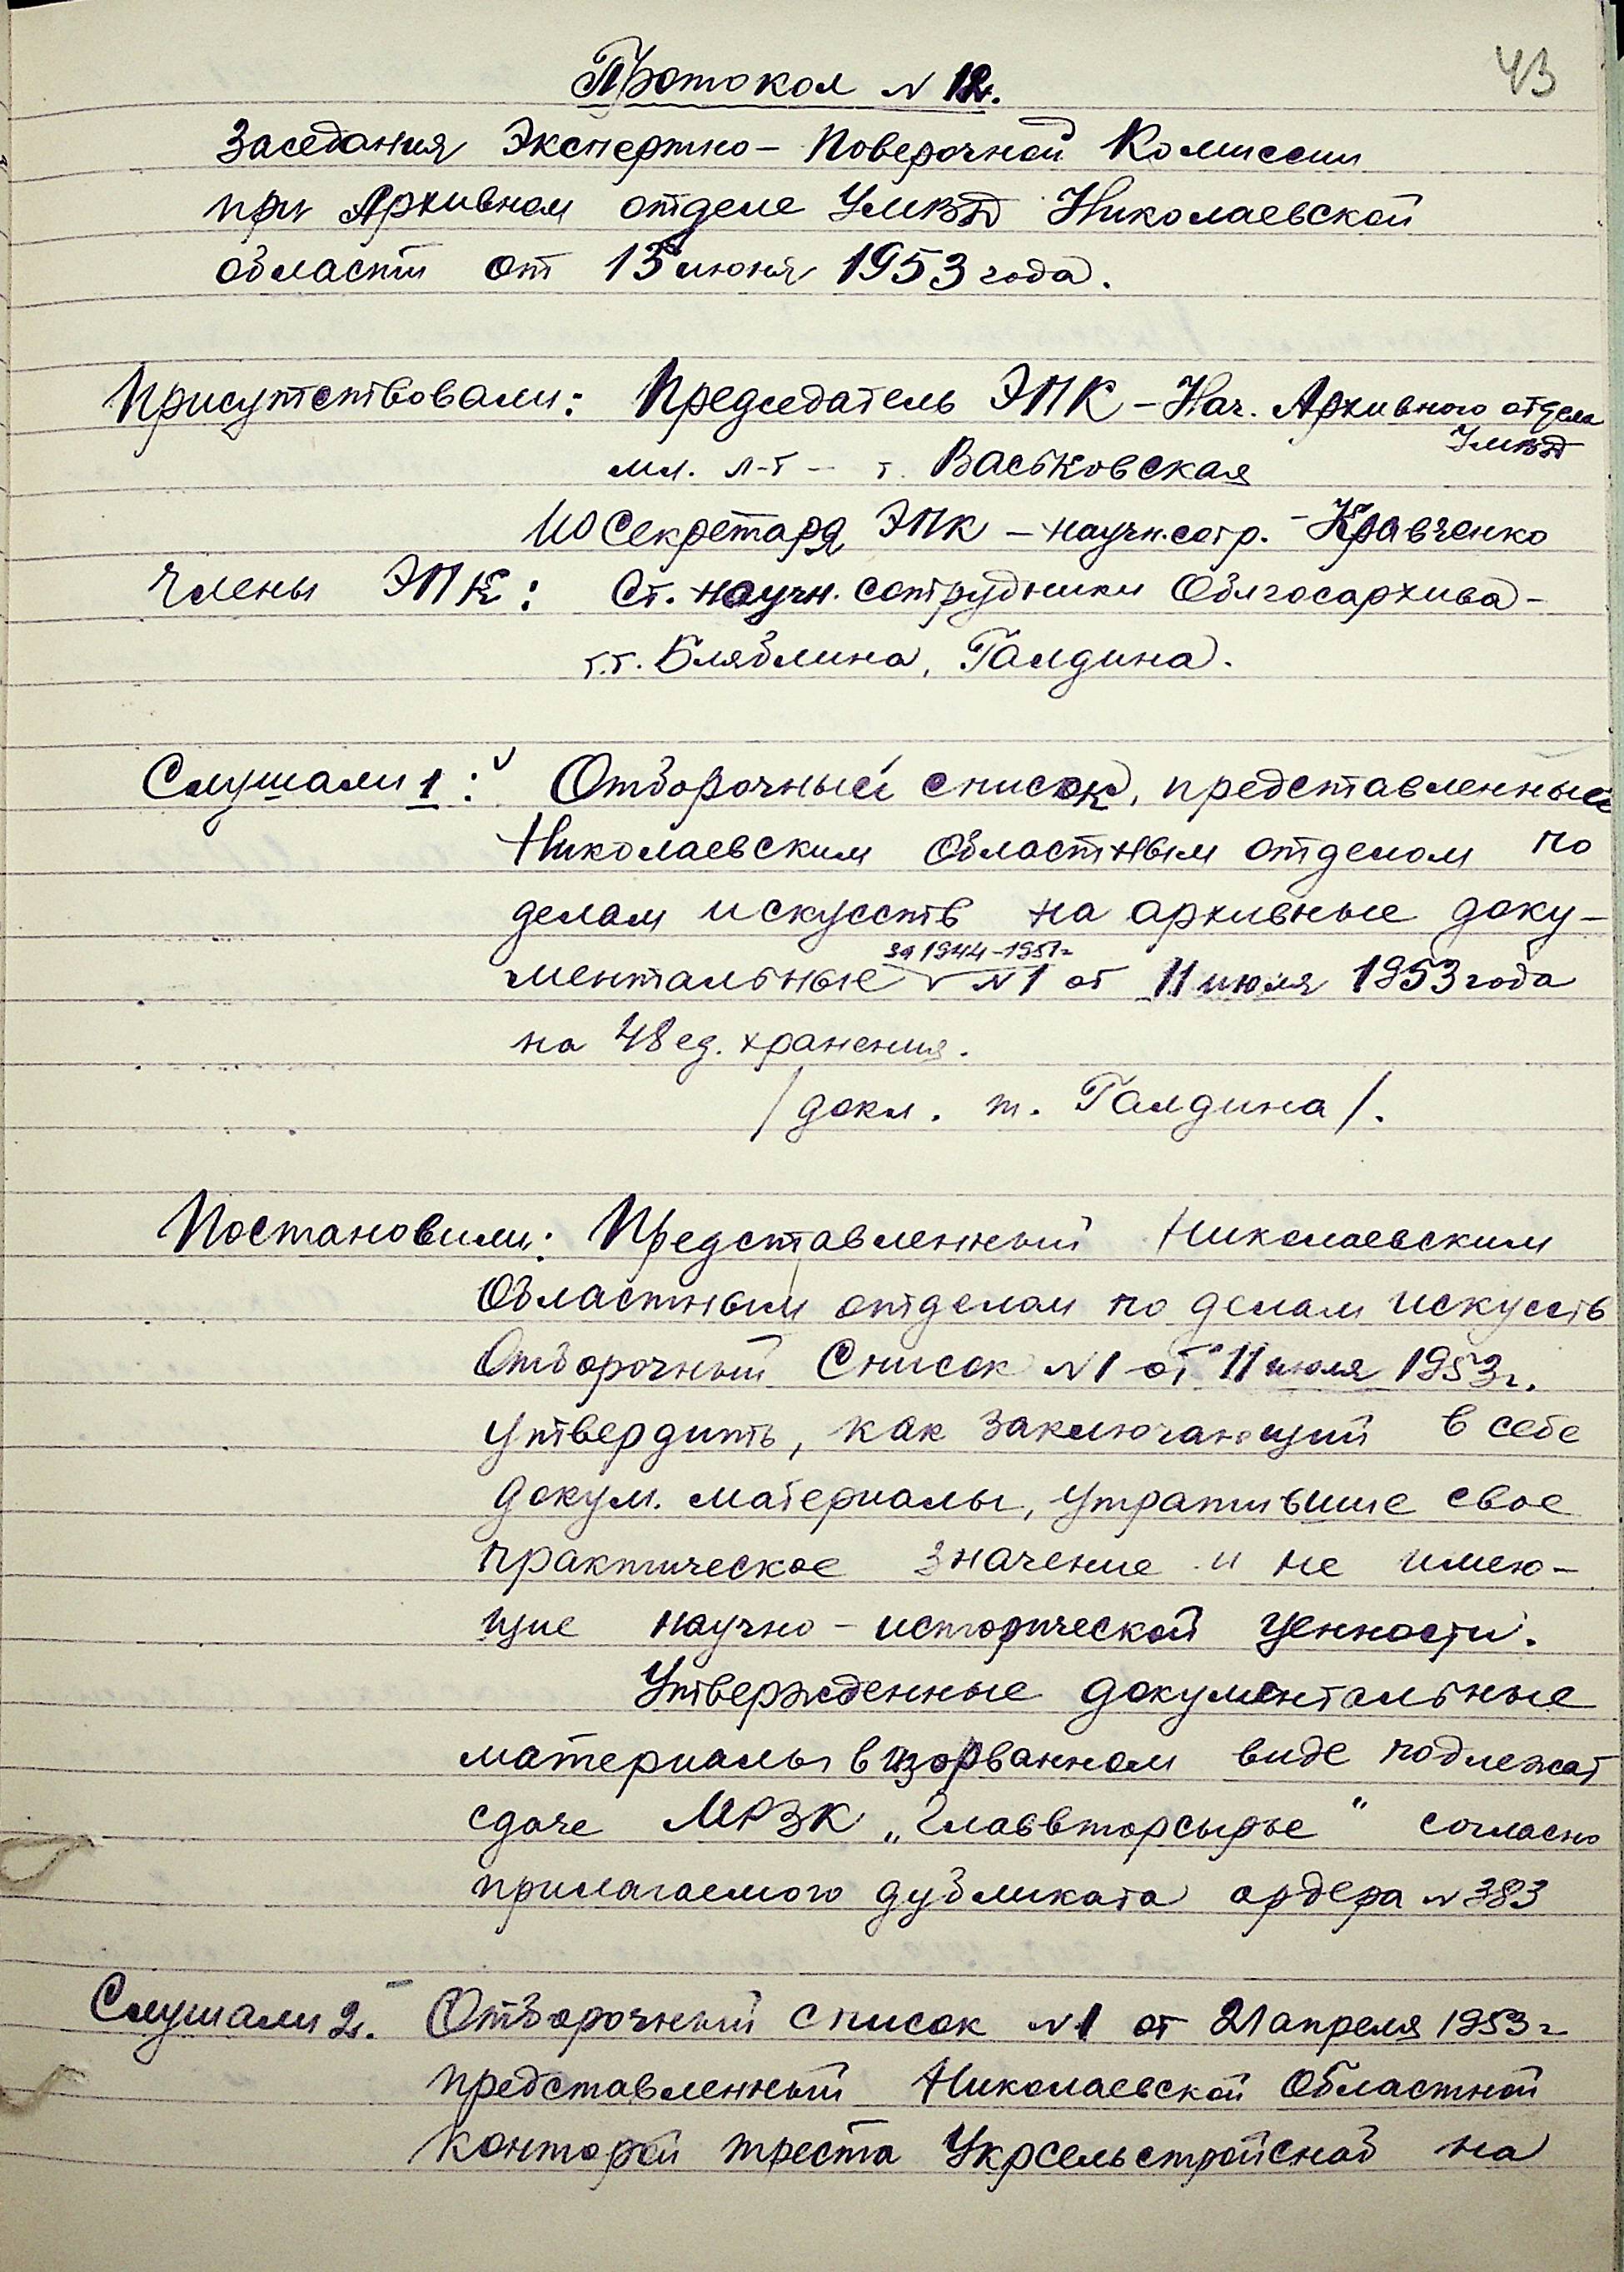 43
Протокол № 12.
Заседания Экспертно – Поверочной Комиссии
при Архивном отделе УМВД Николаевской
области от 15 июня 1953 года.
Присутствовали: Председатель ЭПК – Нач. Архивного отдела
УМВД
мл. л-т – т. Васьковская
ИО Секретаря ЭПК – научн. сотр. – Кравченко
Члены ЭПК: Ст. научн. сотрудники Облгосархива –
т.т. Бляблина, Галдина.
Слушали 1: Отборочный список, представленный
Николаевским Областным отделом по
делам искусств на архивные доку–
за 1944–1951г
ментальные № 1 от 11 июля 1953 года
на 48 ед. хранения.
/докл. т. Галдина/.
Постановили: Представленный Николаевским
Областным отделом по делам искусств
Отборочный Список № 1 от 11 июля 1953 г.
утвердить, как заключающий в себе
докум. материалы, утратившие свое
практическое значение и не имею–
щие научно – исторической ценности.
Утвержденные документальные
материалы в изорванном виде подлежат
сдаче МРЗК „Главвторсырье“ согласно
прилагаемого дубликата ордера № 383
Слушали 2. Отборочный список № 1 от 21 апреля 1953 г
представленный Николаевской Областной
конторой треста Укрсельстройснаб на